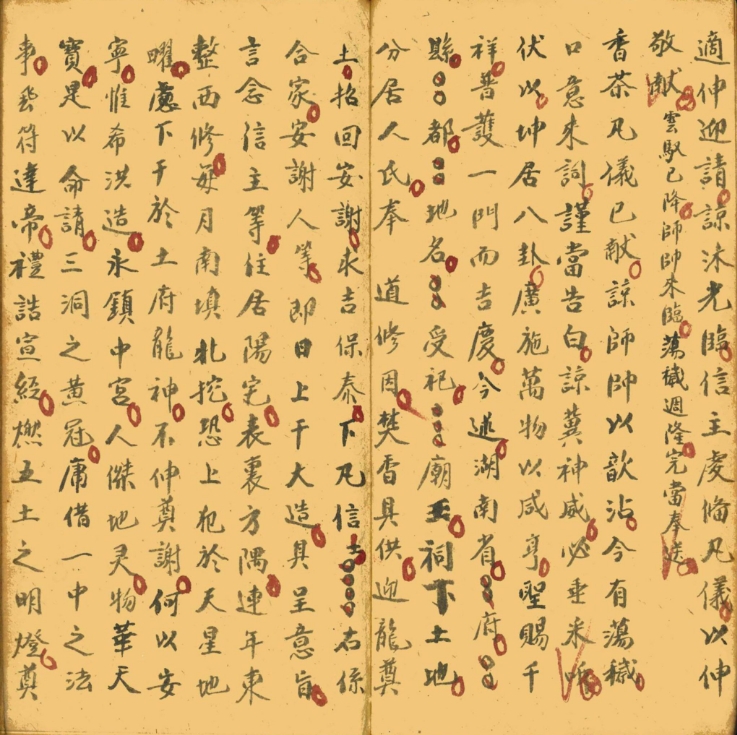 適仲迎請諒沐光臨信主虔俻凡儀以仲
敬献雲馭已降師帥來臨蕩穢週隆完當奉送
香茶凡儀已献諒師帥以歆沾今有蕩穢
口意來詞謹當告白諒冀神威必垂釆听
伏以坤居八卦廣施萬物以咸亨聖賜千
祥普護一門而吉慶今逑湖南省〇〇府〇〇
縣〇〇都〇〇地名〇〇受祀〇〇廟王祠下土地
分居人氏奉 道修因焚香具供迎龍奠
土招回安謝求吉保泰下凡信士〇〇〇〇右係
合家安謝人等即日上干大造具呈意旨
言念信主等住居陽宅表裏方隅連年東
整西修每月南填北挖恐上犯於天星地
曜慮下干於土府龍神不仲奠謝何以安
寧惟希洪造永鎮中宮人傑地灵物華天
寶是以命請三洞之黄冠庸借一中之法
事登符達帝禮誥宣經燃五土之明燈奠